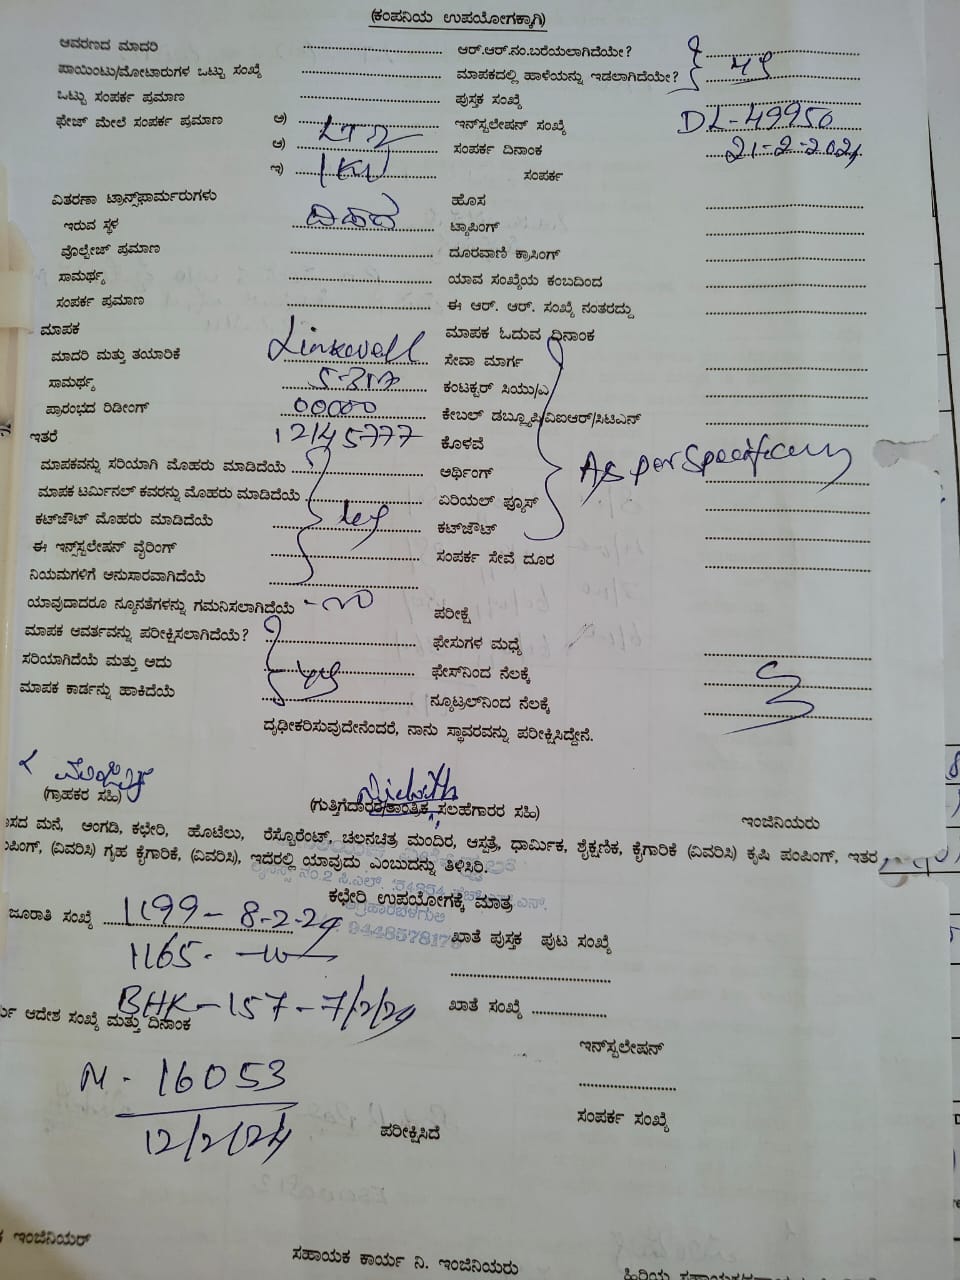 (ಕಂಪನಿಯ ಉಪಯೋಗಕ್ಕಾಗಿ)
ಆವರಣದ ಮಾದರಿ ಆರ್.ಆರ್.ನಂ.ಬರೆಯಲಾಗಿದೆಯೇ?
ಪಾಯಿಂಟು/ಮೋಟಾರುಗಳ ಒಟ್ಟು ಸಂಖ್ಯೆ ಮಾಪಕದಲ್ಲಿ ಹಾಳೆಯನ್ನು ಇಡಲಾಗಿದೆಯೇ?
ಒಟ್ಟು ಸಂಪರ್ಕ ಪ್ರಮಾಣ ಪುಸ್ತಕ ಸಂಖ್ಯೆ
ಫೇಜ್ ಮೇಲೆ ಸಂಪರ್ಕ ಪ್ರಮಾಣ ಅ) ಇನ್‌ಸ್ಟಲೇಷನ್ ಸಂಖ್ಯೆ DL-49950
ಆ) LT2 ಸಂಪರ್ಕ ದಿನಾಂಕ 21-2-2024
ಇ) 1KW ಸಂಪರ್ಕ
ವಿತರಣಾ ಟ್ರಾನ್ಸ್‌ಫಾರ್ಮರುಗಳು ಹೊಸ
ಇರುವ ಸ್ಥಳ ಟ್ಯಾಪಿಂಗ್
ವೊಲ್ಟೇಜ್ ಪ್ರಮಾಣ ದೂರವಾಣಿ ಕ್ರಾಸಿಂಗ್
ಸಾಮರ್ಥ್ಯ ಯಾವ ಸಂಖ್ಯೆಯ ಕಂಬದಿಂದ
ಸಂಪರ್ಕ ಪ್ರಮಾಣ ಈ ಆರ್. ಆರ್. ಸಂಖ್ಯೆ ನಂತರದ್ದು
ಮಾಪಕ ಮಾಪಕ ಓದುವ ದಿನಾಂಕ
ಮಾದರಿ ಮತ್ತು ತಯಾರಿಕೆ Linkwell ಸೇವಾ ಮಾರ್ಗ
ಸಾಮರ್ಥ್ಯ ಕಂಟಕ್ಟರ್ ಸಿಯು/ಎ
ಪ್ರಾರಂಭದ ರಿಡೀಂಗ್ 00000 ಕೇಬಲ್ ಡಬ್ಲ್ಯೂಪಿ/ವಿಐಆರ್/ಸಿಟಿಎನ್
ಇತರೆ 12145777 ಕೊಳವೆ
ಮಾಪಕವನ್ನು ಸರಿಯಾಗಿ ಮೊಹರು ಮಾಡಿದೆಯೆ ಅರ್ಥಿಂಗ್ As per
ಮಾಪಕ ಟರ್ಮಿನಲ್ ಕವರನ್ನು ಮೊಹರು ಮಾಡಿದೆಯೆ ಏರಿಯಲ್ ಫ್ಯೂಸ್
ಕಟ್‌ಜೌಟ್ ಮೊಹರು ಮಾಡಿದೆಯೆ ಕಟ್‌ಜೌಟ್
ಈ ಇನ್‌ಸ್ಟಲೇಷನ್ ವೈರಿಂಗ್ ಸಂಪರ್ಕ ಸೇವೆ ದೂರ
ನಿಯಮಗಳಿಗೆ ಅನುಸಾರವಾಗಿದೆಯೆ
ಯಾವುದಾದರೂ ನ್ಯೂನತೆಗಳನ್ನು ಗಮನಿಸಲಾಗಿದೆಯೆ ಪರೀಕ್ಷೆ
ಮಾಪಕ ಆವರ್ತವನ್ನು ಪರೀಕ್ಷಿಸಲಾಗಿದೆಯೆ? ಫೇಸುಗಳ ಮಧ್ಯೆ
ಸರಿಯಾಗಿದೆಯೆ ಮತ್ತು ಅದು ಫೇಸ್‌ನಿಂದ ನೆಲಕ್ಕೆ
ಮಾಪಕ ಕಾರ್ಡನ್ನು ಹಾಕಿದೆಯೆ ನ್ಯೂಟ್ರಲ್‌ನಿಂದ ನೆಲಕ್ಕೆ
ದೃಢೀಕರಿಸುವುದೇನೆಂದರೆ, ನಾನು ಸ್ಥಾವರವನ್ನು ಪರೀಕ್ಷಿಸಿದ್ದೇನೆ.
(ಗ್ರಾಹಕರ ಸಹಿ) (ಗುತ್ತಿಗೆದಾರರ/ತಾಂತ್ರಿಕ ಸಲಹೆಗಾರರ ಸಹಿ) ಇಂಜಿನಿಯರು
ಮನೆ, ಅಂಗಡಿ, ಕಛೇರಿ, ಹೊಟೆಲು, ರೆಸ್ಟೊರೆಂಟ್, ಚಲನಚಿತ್ರ ಮಂದಿರ, ಆಸ್ಪತ್ರೆ, ಧಾರ್ಮಿಕ, ಶೈಕ್ಷಣಿಕ, ಕೈಗಾರಿಕೆ (ವಿವರಿಸಿ) ಕೃಷಿ ಪಂಪಿಂಗ್, ಇತರ
(ವಿವರಿಸಿ) ಗೃಹ ಕೈಗಾರಿಕೆ, (ವಿವರಿಸಿ), ಇದರಲ್ಲಿ ಯಾವುದು ಎಂಬುದನ್ನು ತಿಳಿಸಿರಿ.
ಕಛೇರಿ ಉಪಯೋಗಕ್ಕೆ ಮಾತ್ರ
ಜೂರಾತಿ ಸಂಖ್ಯೆ 1199 - 8-2-24
9448578179 ಖಾತೆ ಪುಸ್ತಕ ಪುಟ ಸಂಖ್ಯೆ
1165.
BHK-157-7/2/24 ಖಾತೆ ಸಂಖ್ಯೆ
ಆದೇಶ ಸಂಖ್ಯೆ ಮತ್ತು ದಿನಾಂಕ
ಇನ್‌ಸ್ಟಲೇಷನ್
M - 16053
12/2/24 ಸಂಪರ್ಕ ಸಂಖ್ಯೆ
ಪರೀಕ್ಷಿಸಿದೆ
ಇಂಜಿನಿಯರ್
ಸಹಾಯಕ ಕಾರ್ಯ ನಿ. ಇಂಜಿನಿಯರು